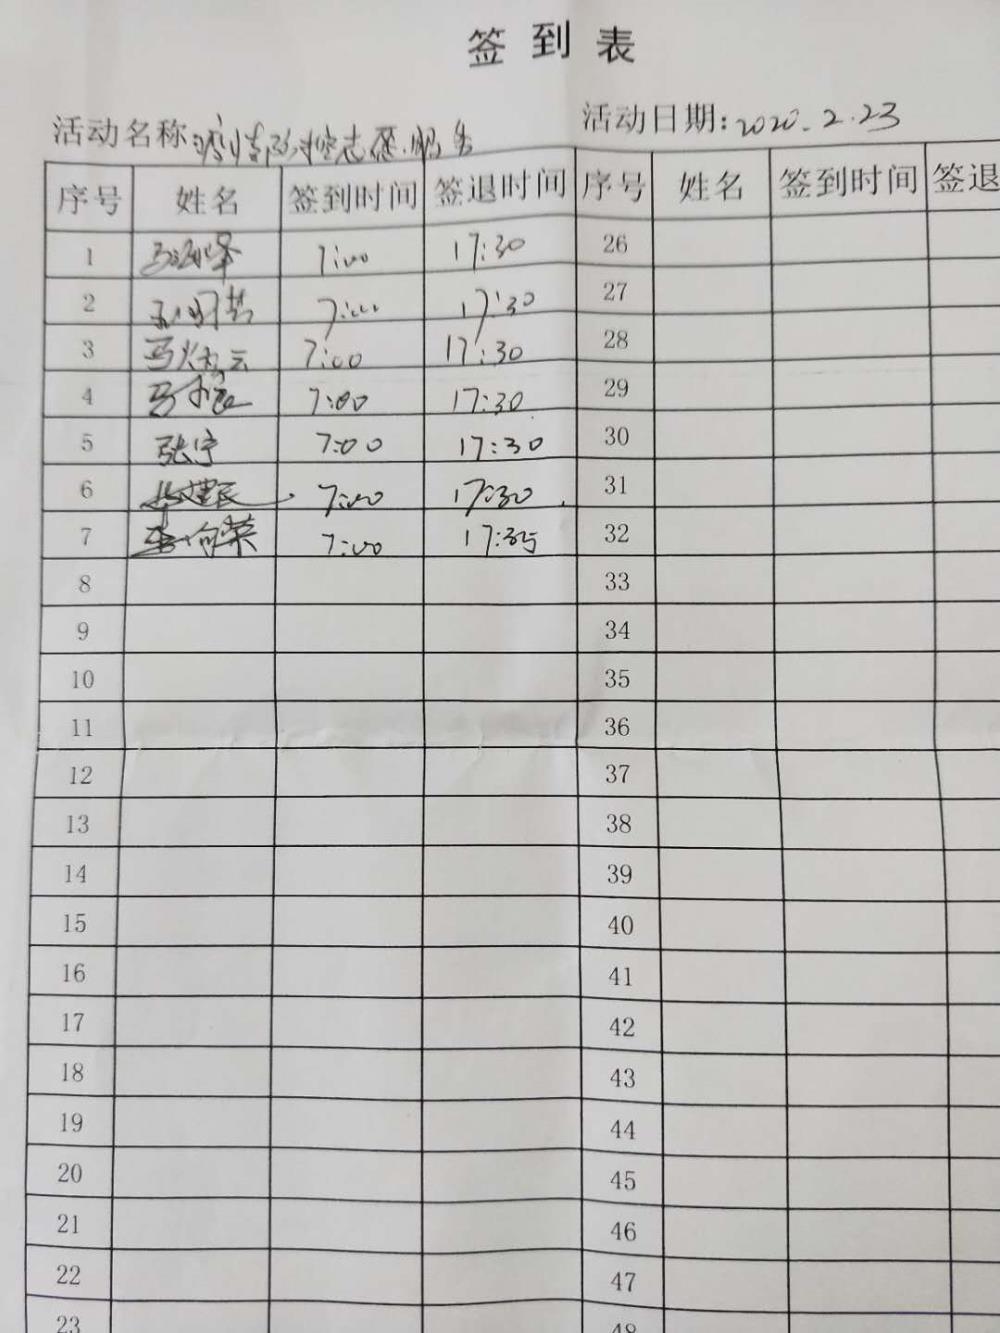 签到表
活动名称:疫情防控志愿服务 活动日期:2020.2.23
序号 姓名 签到时间 签退时间 序号 姓名 签到时间 签退
1 7:00 17:30 26
2 7:00 17:30 27
3 7:00 17:30 28
4 7:00 17:30 29
5 张宇 7:00 17:30 30
6 7:00 17:30 31
7 李向荣 7:00 17:35 32
8 33
9 34
10 35
11 36
12 37
13 38
14 39
15 40
16 41
17 42
18 43
19 44
20 45
21 46
22 47
23 48